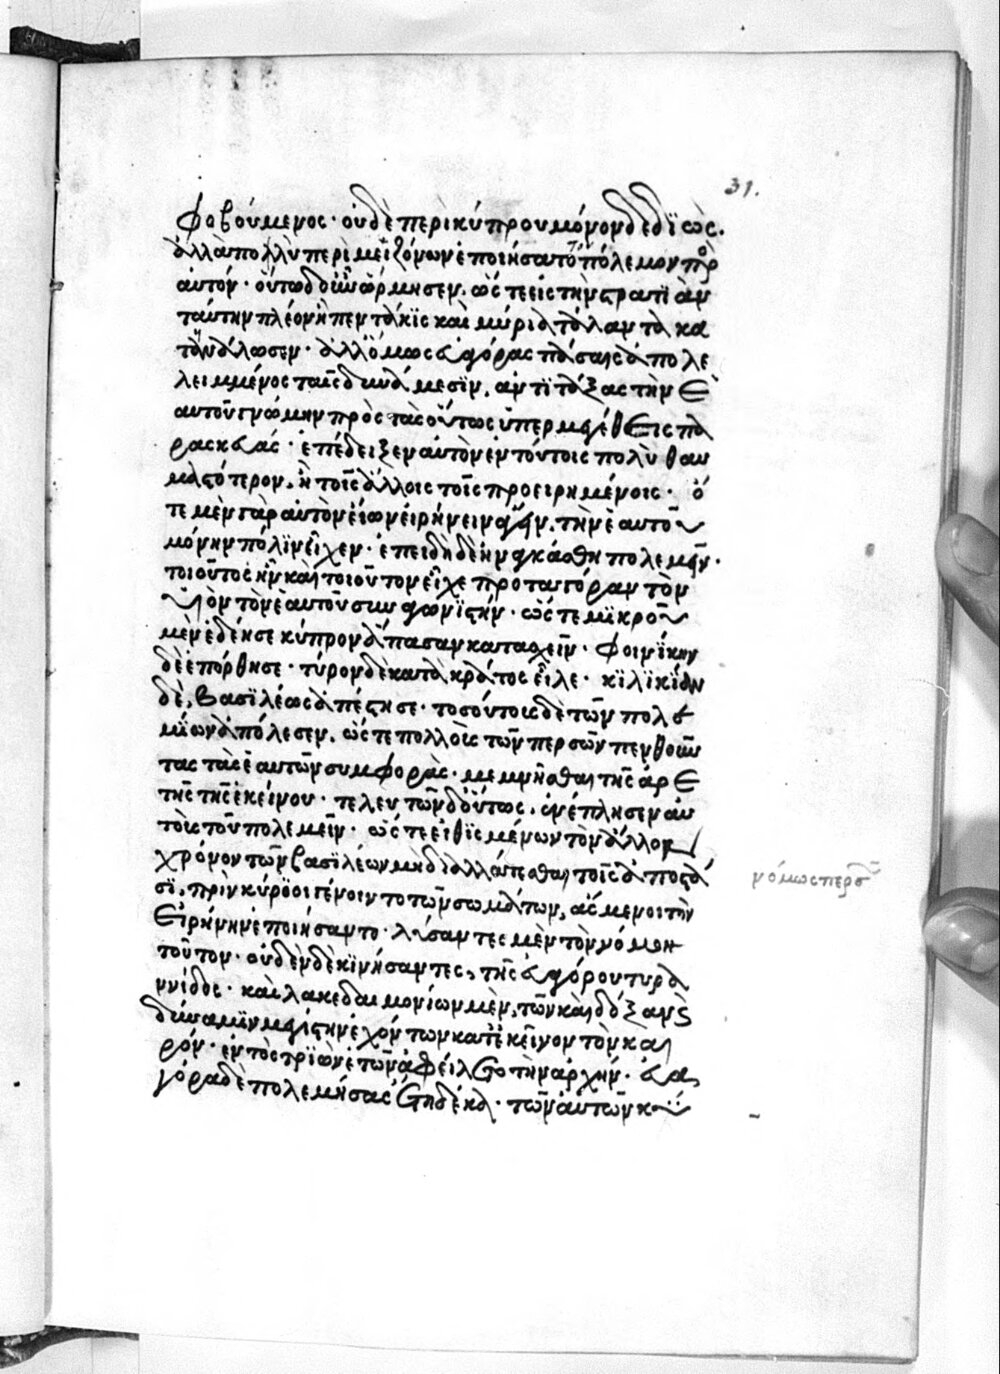 31.
φοβούμενος· οὐδὲ περὶ κύπρου μόνον δεδϊὼς.
ἀλλὰ πολλὺ περὶ μειζόνων ἐποιήσατο τὸν πόλεμον πρὸς
αὐτόν· οὕτω δ' οὖν ὥρμησεν, ὥς τε εἰς τὴν στρατϊὰν
ταύτην πλέον ἢ πεντάκϊς καὶ μύρια τάλαντα κα
τανάλωσεν· ἀλλ' ὅμως εὐαγόρας πάσαις ἀπολε
λειμμένος ταῖς δυνάμεσϊν, ἀντϊτάξας τὴν ἑ
αυτοῦ γνώμην πρὸς τὰς οὕτως ὑπερμεγέθεις πα
ρασκευάς· ἐπέδειξεν αὑτὸν ἐν τούτοις πολὺ θαυ
μαστότερον, ἢ τοῖς ἄλλοις τοῖς προειρημένοις· ὅ
τε μὲν γὰρ αὐτὸν εἴων εἰρήνειν ἄγειν, τὴν ἑαυτοῦ
μόνην πόλϊν εἶχεν· ἐπειδὴ δὲ ἠναγκάσθη πολεμεῖν·
τοιοῦτος ἦν καὶ τοιοῦτον εἶχε προταγόραν τὸν
υἱὸν τὸν ἑαυτοῦ συναγωνϊστήν· ὥς τε μϊκροῦ
μὲν ἐδέησε κύπρον ἅπασαν κατασχεῖν· φοινίκην
δὲ ἐπόρθησε· τύρον δὲ κατὰ κράτος εἷλε· κϊλικίαν
δὲ, βασϊλέως ἀπέστησε· τοσούτους δὲ τῶν πολε
μΐων ἀπόλεσεν, ὥς τε πολλοὺς τῶν περσῶν πενθοῦν
τας τὰς ἑαυτῶν συμφορὰς· μεμνῆσθαι τῆς ἀρε
τῆς τῆς ἐκείνου· τελευτῶν δ' οὕτως, ἐνέπλησεν αὐ
τοὺς τοῦ πολεμεῖν· ὥς τε εἰθϊσμένων τὸν ἄλλον
χρόνον τῶν βασϊλέων μὴ διαλλάττεσθαι τοῖς ἀποστᾶ
σϊ, πρὶν κύρϊοι γένοιντο τῶν σωμάτων, ἄσμενοι τὴν
εἰρήνην ἐποιήσαντο· λύσαντες μὲν τὸν νόμον
τοῦτον· οὐδὲν δὲ κϊνήσαντες, τῆς εὐαγόρου τυρα
ννίδος· καὶ λακεδαιμονίων μὲν, τῶν καὶ δόξαν καὶ
δύναμϊν μεγίστην ἐχόντων κατ' ἐκεῖνον τὸν και
ρόν· ἐντὸς τρϊῶν ἐτῶν ἀφείλετο τὴν ἀρχήν· εὐα
γόρα δὲ πολεμήσας ἔτη δέκα· τῶν αὐτῶν κύ
νόμος περσῶν